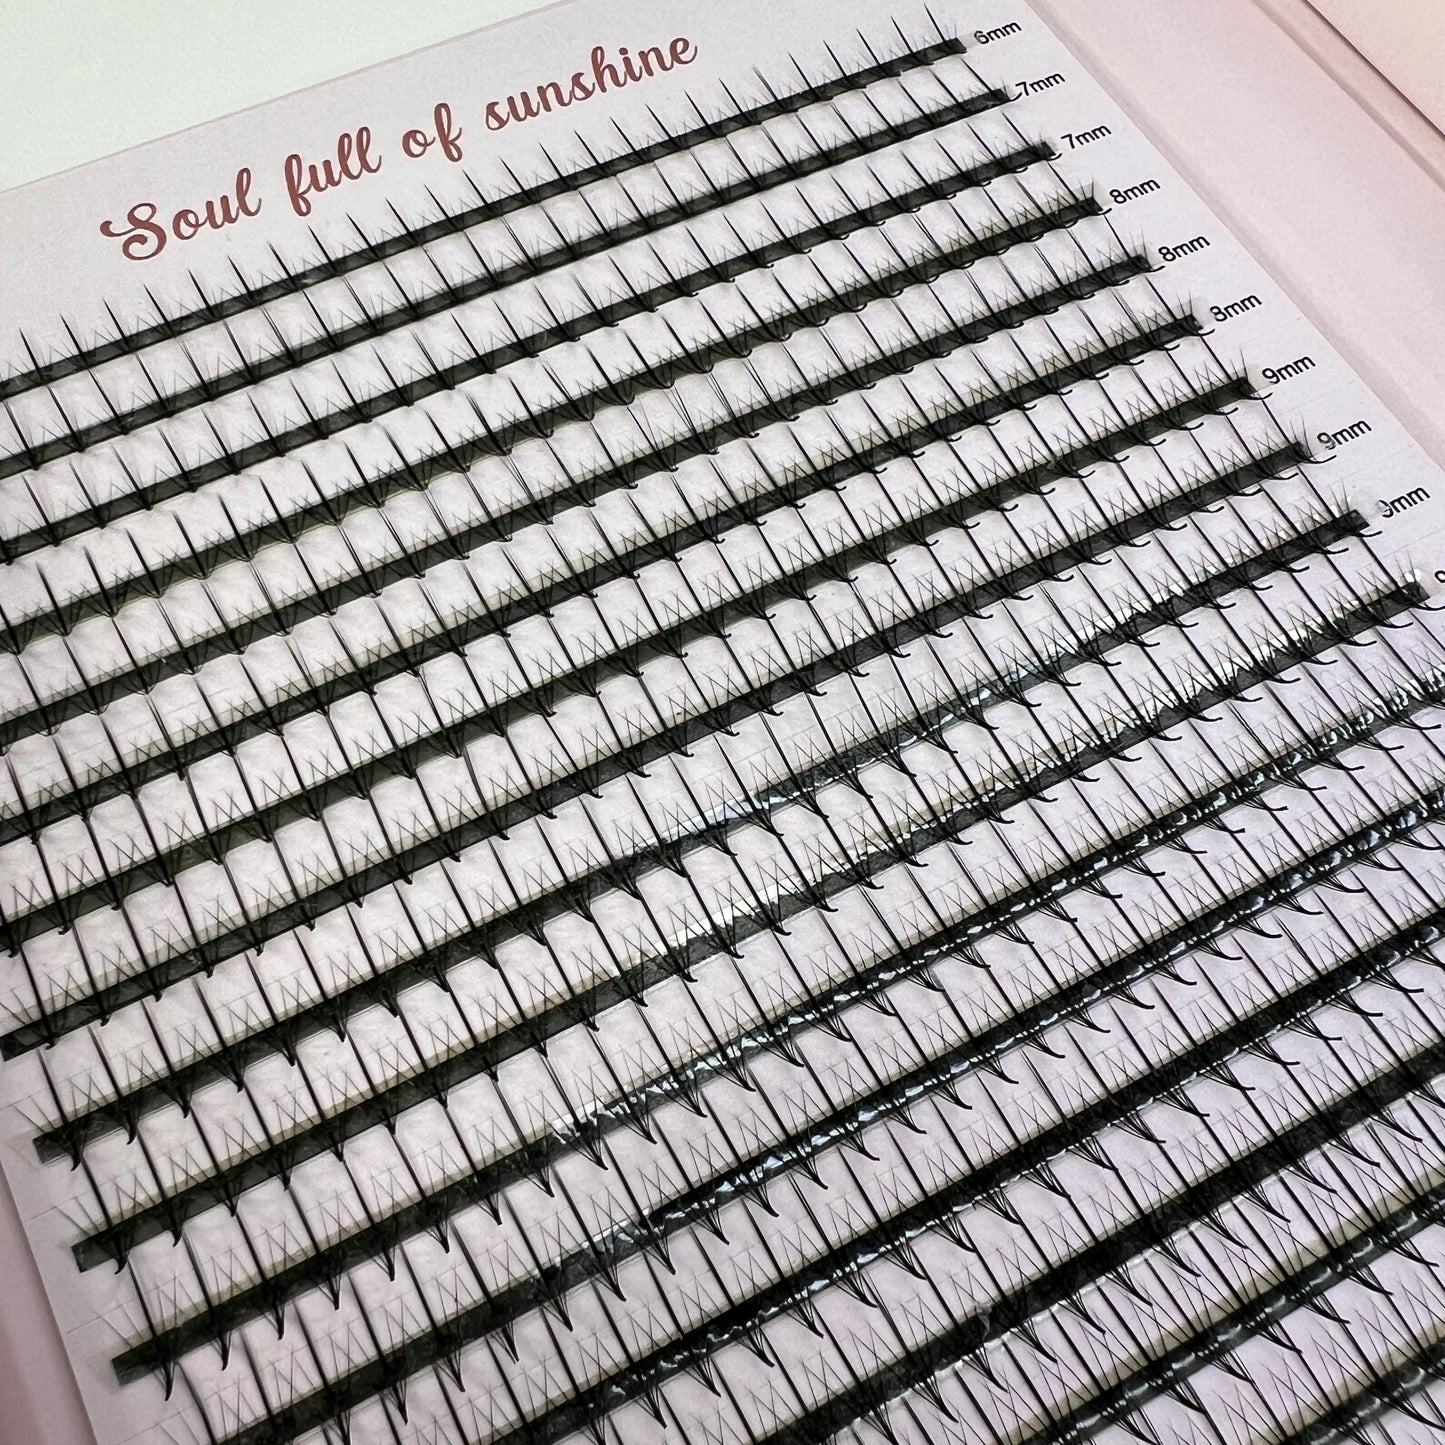 Soul full of sunshine
6mm
7mm
7mm
8mm
8mm
8mm
9mm
9mm
9mm